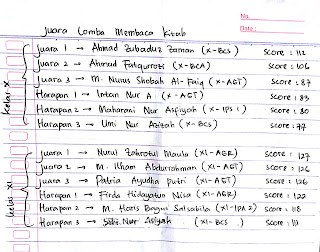 No.
Date:
Juara Lomba Membaca Kitab
Kelas X
Juara 1 → Ahmad Zubaduz Zaman (X-BCS) Score : 112
Juara 2 → Ahmad Fatqurrozi (X-BCA) Score : 106
Juara 3 → M. Nurus Shobah Al-Faiq (X-AGT) Score : 87
Harapan 1 → Intan Nur A. (X-AGT) Score : 83
Harapan 2 → Maharani Nur Asfiyah (X-IPS 1) Score : 80
Harapan 3 → Umi Nur Azizah (X-BCS) Score : 77
Kelas XI
Juara 1 → Nurul Zahrotul Maula (XI-AGR) Score : 127
Juara 2 → M. Ilham Abdurrohman (XI-AGT) Score : 126
Juara 3 → Patria Ayudha Putri (XI-AGT) Score : 126
Harapan 1 → Firda Hidayatun Nisa (XI-AGR) Score : 122
Harapan 2 → M. Haris Bagus Salsabila (XI-IPA 2) Score : 118
Harapan 3 → Nur Asiyah (XI-BCS) Score : 111